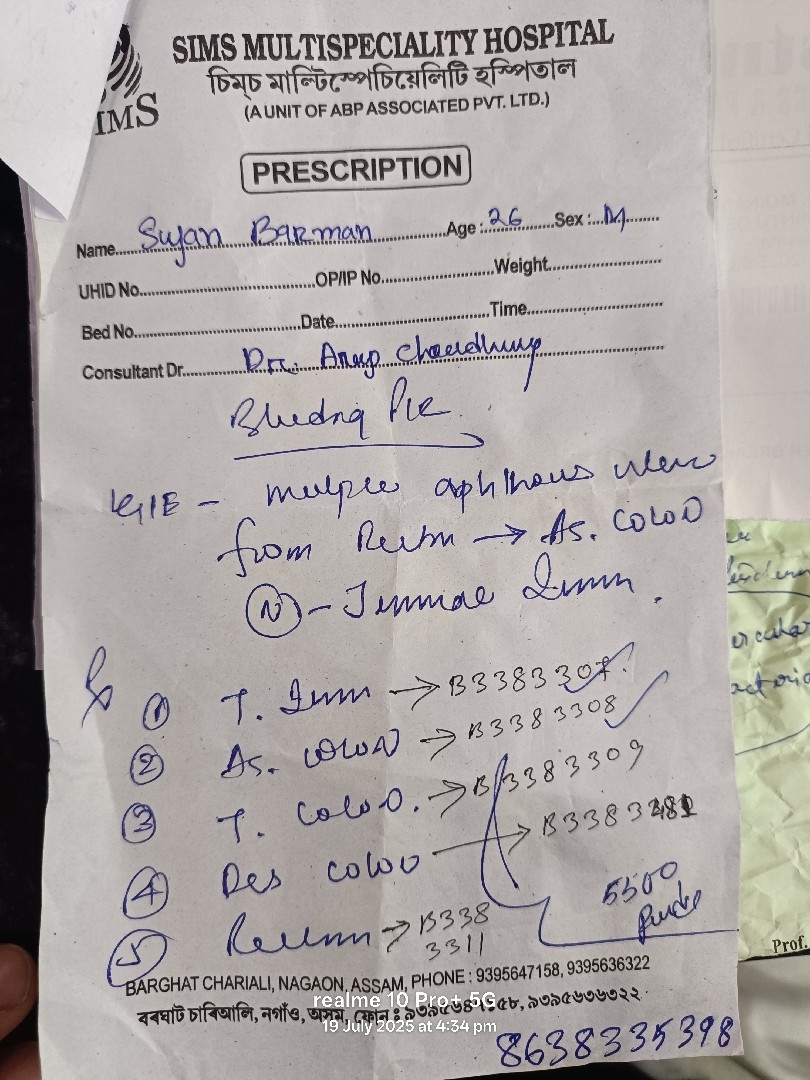 SIMS MULTISPECIALITY HOSPITAL
চিম্‌চ মাল্টিস্পেচিয়েলিটি হস্পিতাল
(A UNIT OF ABP ASSOCIATED PVT. LTD.)
IMS
PRESCRIPTION
Name Sujan Barman Age: 26 Sex: M
UHID No. OP/IP No. Weight
Bed No. Date Time
Consultant Dr. Dr. Anup Choudhury
Bleeding P/R
multiple aphthous ulcer
from Rectm → As. COLON
(N) - Terminal Ileum.
① T. Ileum → B3383307
② As. COLON → B3383308
③ T. COLON. → B3383309
④ Des COLON → B3383
⑤ Rectum → B338
3311
5500
BARGHAT CHARIALI, NAGAON, ASSAM, PHONE : 9395647158, 9395636322
realme 10 Pro+ 5G
বৰঘাট চাৰিআলি, নগাঁও, অসম, ফোন : ৯৩৯৫৬৪৭১৫৮, ৯৩৯৫৬৩৬৩২২
19 July 2025 at 4:34 pm
8638335398
Prof.